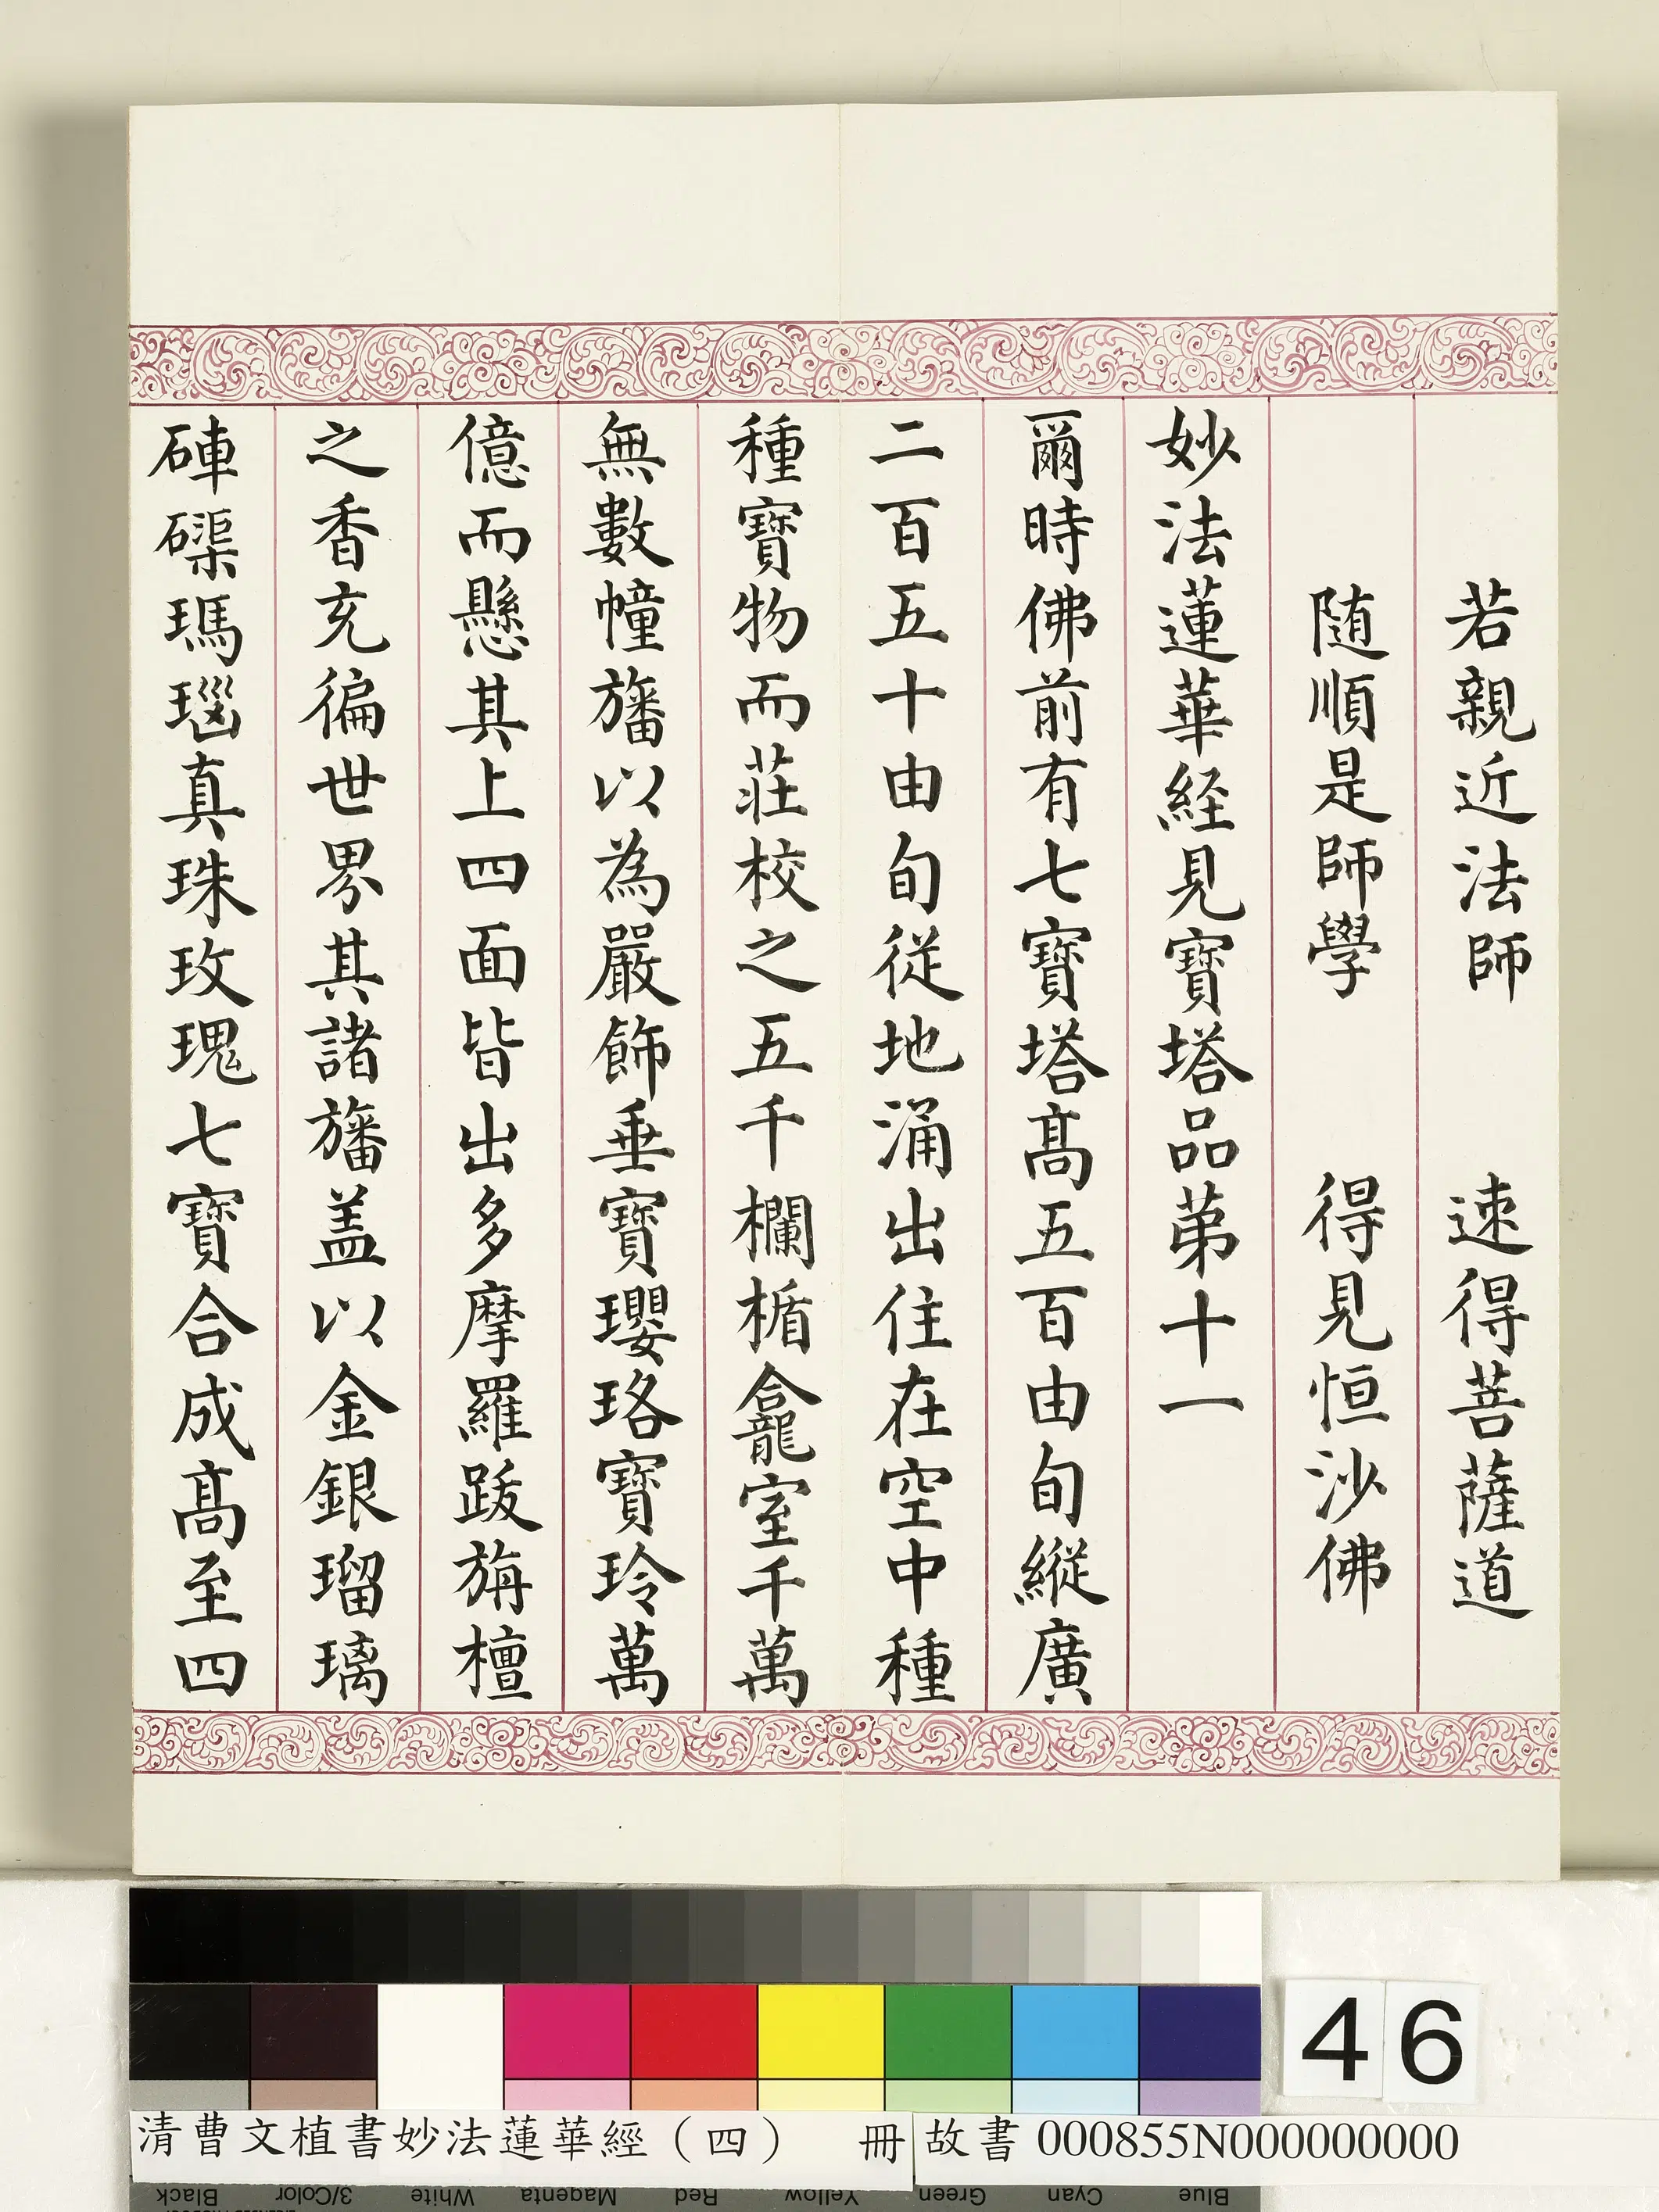 若親近法師　速得菩薩道
随順是師學　得見恒沙佛
妙法蓮華経見寶塔品第十一
爾時佛前有七寶塔髙五百由旬縱廣
二百五十由旬従地涌出住在空中種
種寶物而莊校之五千欄楯龕室千萬
無數幢旛以為嚴飾垂寶瓔珞寶玲萬
億而懸其上四面皆出多摩羅跋旃檀
之香充徧世界其諸旛盖以金銀瑠璃
硨磲瑪瑙真珠玫瑰七寶合成髙至四
46
清曹文植書妙法蓮華經（四）　冊
故書 000855N000000000
Black 3/Color White Magenta Red Yellow Green Cyan Blue